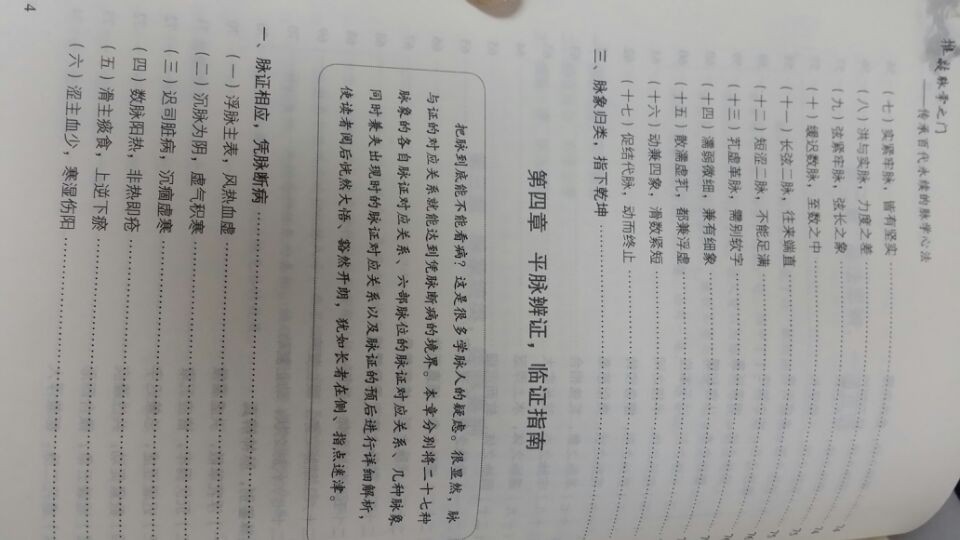 推敲脉学之门
——传承百代永续的脉学心法
（七）实紧牢脉，皆有坚实
（八）洪与实脉，力度之差
（九）弦紧牢脉，弦长之象
（十）缓迟数脉，至数之中
（十一）长弦二脉，往来端直
（十二）短涩二脉，不能足满
（十三）芤虚革脉，需别软字
（十四）濡弱微细，兼有细象
（十五）散濡虚芤，都兼浮虚
（十六）动兼四象，滑数紧短
（十七）促结代脉，动而终止
三、脉象归类，指下乾坤
第四章 平脉辨证，临证指南
把脉到底能不能看病？这是很多学脉人的疑虑。很显然，脉
与证的对应关系就能达到凭脉断病的境界。本章分别将二十七种
脉象的各自脉证对应关系、六部脉位的脉证对应关系、几种脉象
同时兼夹出现时的脉证对应关系以及脉证的预后进行详细解析，
使读者阅后恍然大悟、豁然开朗，犹如长者在侧、指点迷津。
一、脉证相应，凭脉断病
（一）浮脉主表，风热血虚
（二）沉脉为阴，虚气积寒
（三）迟司脏病，沉痼虚寒
（四）数脉阳热，非热即疮
（五）滑主痰食，上逆下瘀
（六）涩主血少，寒湿伤阳
4